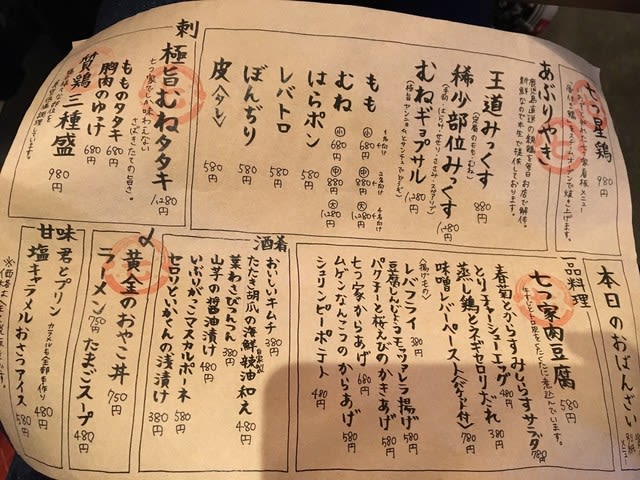 七つ星鶏
980円
あぶりやき
鹿児島直送の親鶏を毎日お店で解体。
新鮮なので半生で提供しております。
王道みっくす 880円
(定番のもも・むね)
稀少部位みっくす 1,280円
むねギョプサル 1,280円
(極旨サンジャムとサンチュでどうぞ)
もも 小 680円 中 880円 大 1,280円
むね 小 680円 中 880円 大 1,280円
1名向け
2名向け
4名向け
はらポン 580円
レバトロ 580円
ぼんぢり 580円
皮(タレ) 580円
刺
極旨むねタタキ 1,280円
七つ家でしか味わえない
さばきたての旨さ。
もものタタキ 680円
胸肉のゆっけ 680円
贅鶏三種盛 980円
本日のおばんざい
別紙メニュー
一品料理
七つ家肉豆腐 580円
春菊とからすみしらすサラダ 780円
とりチャーシューエッグ 480円
蒸し鶏とネギセロリだれ 380円
味噌レバーペースト(バケット付) 780円
(揚げもの)
レバフライ 380円
豆腐しんじょうモッツァレラ揚げ 580円
パクチーと桜えびのかきあげ 580円
七つ家からあげ 680円
ムゲンなんこつのからあげ 580円
シュリンピーポテト 480円
酒肴
おいしいキムチ 380円
たたき胡瓜の海鮮辣油和え 480円
自家製
茎わさびつんつん 380円
山芋の醤油漬け 480円
いぶりがっこマスカルポーネ 580円
セロリといかくんの浅漬け 380円
〆
黄金のおやこ丼 750円
ラーメン 750円
たまごスープ 480円
甘味
君とプリン 480円
カラメルも全部手作り
塩キャラメルおさつアイス 580円